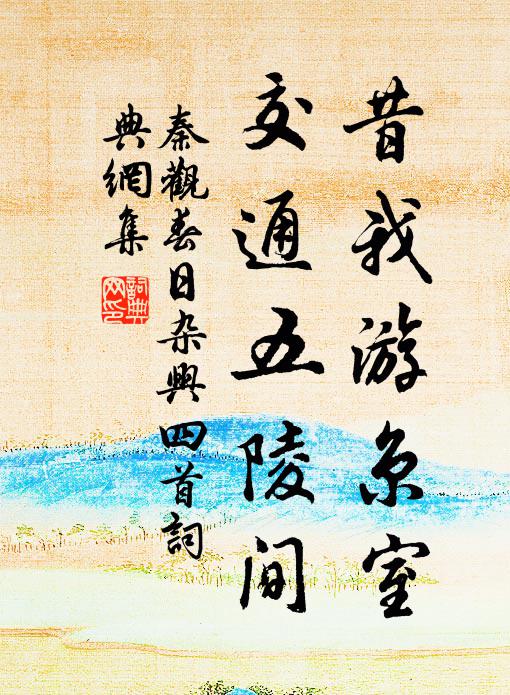 昔我游京室
交通五陵间
秦觀春日杂興四首詞
典網集
詞典
网印